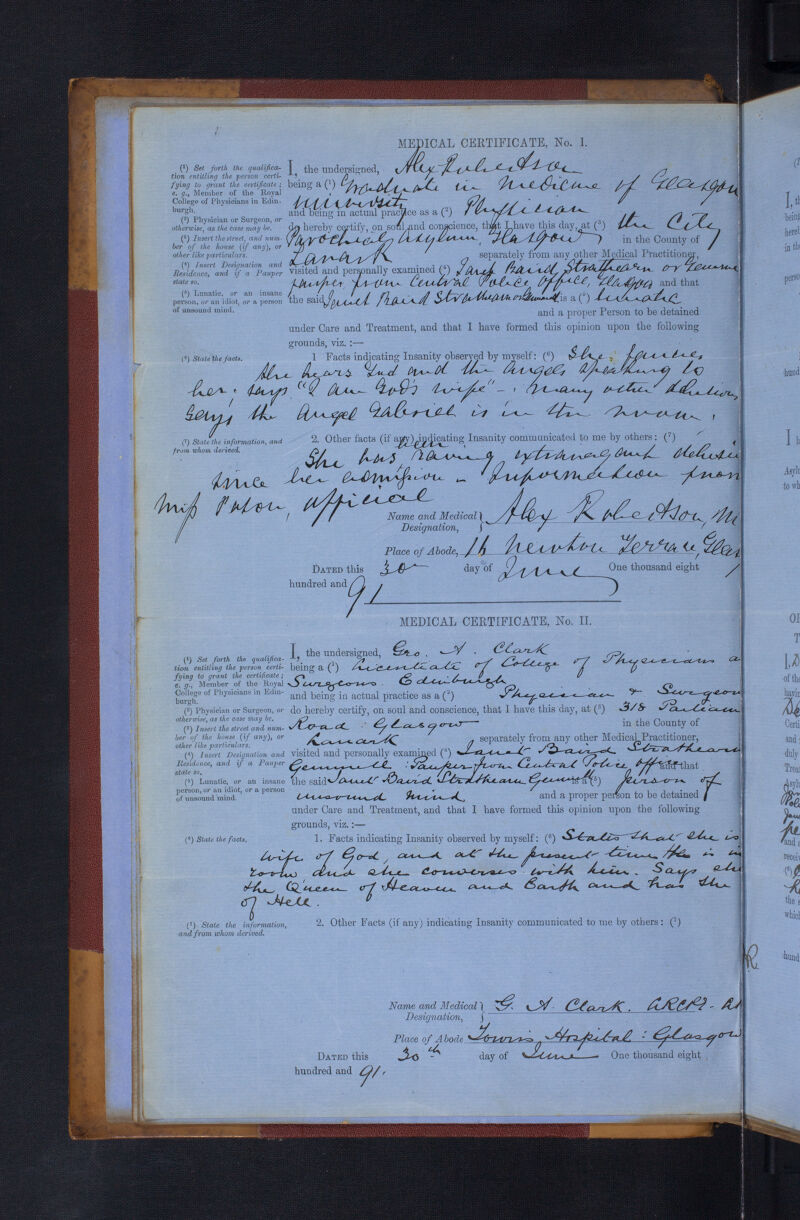 MEDICAL CERTIFICATE, No. I.
(¹) Set forth the qualifica-
tion entitling the person certi-
fying to grant the certificate;
e. g., Member of the Royal
College of Physicians in Edin-
burgh.
(²) Physician or Surgeon, or
otherwise, as the case may be.
(³) Insert the street, and num-
ber of the house (if any), or
other like particulars.
(⁴) Insert Designation and
Residence, and if a Pauper
state so.
(⁵) Lunatic, or an insane
person, or an idiot, or a person
of unsound mind.
I, the undersigned, Alex Robertson
being a (¹) Graduate in Medicine of Glasgow
University
and being in actual practice as a (²) Physician
do hereby certify, on soul and conscience, that I have this day, at (³) the City
Parochial Asylum, Glasgow in the County of
Lanark separately from any other Medical Practitioner,
visited and personally examined (⁴) Janet Baird Strathearn or Gemmell
pauper from Central Police Office, Glasgow and that
the said Janet Baird Strathearn or Gemmell is a (⁵) lunatic
and a proper Person to be detained
under Care and Treatment, and that I have formed this opinion upon the following
grounds, viz. :—
(⁶) State the facts.
1 Facts indicating Insanity observed by myself: (⁶) She fancies
she hears God and the angels speaking to
her; says "I am God's wife" - many other delusions
Says the Angel Gabriel is in the room.
(⁷) State the information, and
from whom derived.
2. Other facts (if any) indicating Insanity communicated to me by others: (⁷)
She has been having extravagant
since her admission - Information from
Miss Paton, official
Name and Medical Designation, Alex Robertson, M
Place of Abode, 16 Newton Terrace, Glas
DATED this 30 day of June One thousand eight
hundred and 91
MEDICAL CERTIFICATE, No. II.
(¹) Set forth the qualifica-
tion entitling the person certi-
fying to grant the certificate;
e. g., Member of the Royal
College of Physicians in Edin-
burgh.
(²) Physician or Surgeon, or
otherwise, as the case may be.
(³) Insert the street and num-
ber of the house (if any), or
other like particulars.
(⁴) Insert Designation and
Residence, and if a Pauper
state so.
(⁵) Lunatic, or an insane
person, or an idiot, or a person
of unsound mind.
I, the undersigned, Geo. A. Clark
being a (¹) Licentiate of College of Physicians a
Surgeons Edinburgh
and being in actual practice as a (²) Physician & Surgeon
do hereby certify, on soul and conscience, that I have this day, at (³) 318 Parliam
Road : Glasgow in the County of
Lanark separately from any other Medical Practitioner,
visited and personally examined (⁴) Janet Baird Strathearn
Gemmell : Pauper from Central Police Office and that
the said Janet Baird Strathearn Gemmell is a (⁵) person of
unsound mind and a proper person to be detained
under Care and Treatment, and that I have formed this opinion upon the following
grounds, viz. :—
(⁶) State the facts.
1. Facts indicating Insanity observed by myself: (⁶) States that she is
wife of God, and at the present time He is in
room and she converses with him. Says she
the Queen of Heaven and Earth and has the
of Hell.
(⁷) State the information,
and from whom derived.
2. Other Facts (if any) indicating Insanity communicated to me by others: (⁷)
Name and Medical Designation, G. A. Clark.
Place of Abode Towns Hospital : Glasgow
DATED this 30th day of June One thousand eight
hundred and 91.